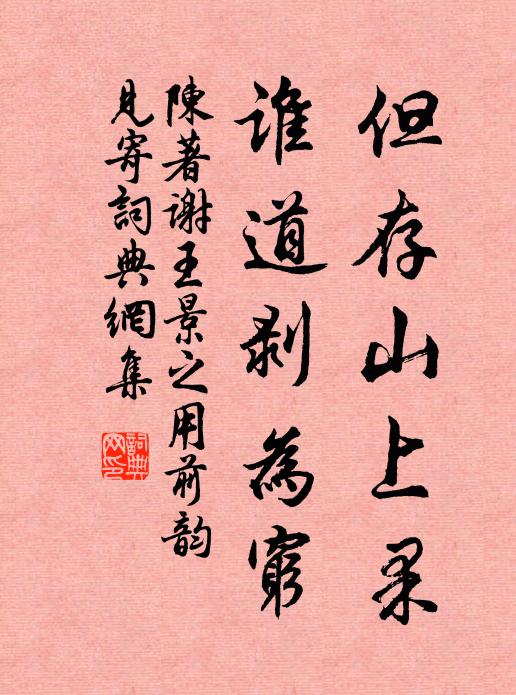 但存山上果
谁道剥為窮
陳著谢王景之用前韵
見寄詞典網集
詞典
网印